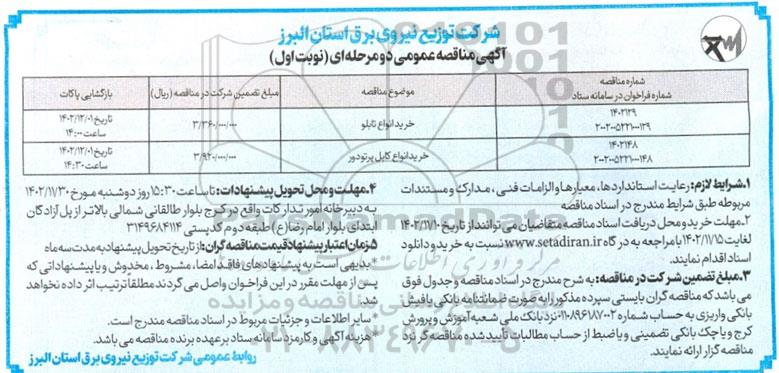 شرکت توزیع نیروی برق استان البرز
آگهی مناقصه عمومی دو مرحله‌ای (نوبت اول)
شماره مناقصه
شماره فراخوان در سامانه ستاد
موضوع مناقصه
مبلغ تضمین شرکت در مناقصه (ریال)
بازگشایی پاکات
۱۴۰۲۱۳۹
۲۰۰۲۰۰۵۲۲۱۰۰۰۱۳۹
خرید انواع تابلو
۳/۳۶۰/۰۰۰/۰۰۰
تاریخ ۱۴۰۲/۱۲/۰۱
ساعت ۱۴:۰۰
۱۴۰۲۱۴۸
۲۰۰۲۰۰۵۲۲۱۰۰۰۱۴۸
خرید انواع کابل پرتودور
۳/۹۲۰/۰۰۰/۰۰۰
تاریخ ۱۴۰۲/۱۲/۰۱
ساعت ۱۴:۳۰
۱.شرایط لازم: رعایت استانداردها، معیارها و الزامات فنی، مدارک و مستندات
مربوطه طبق شرایط مندرج در اسناد مناقصه
۲.مهلت خرید و محل دریافت اسناد مناقصه متقاضیان می توانند از تاریخ ۱۴۰۲/۱۱/۱۰
لغایت ۱۴۰۲/۱۱/۱۵ با مراجعه به درگاه www.setadiran.ir نسبت به خرید و دانلود
اسناد اقدام نمایند.
۳.مبلغ تضمین شرکت در مناقصه: به شرح مندرج در اسناد مناقصه و جدول فوق
می باشد که مناقصه گران بایستی سپرده مذکور را به صورت ضمانتنامه بانکی یا فیش
بانکی واریزی به حساب شماره ۰۱۱۰۸۹۶۱۸۷۰۰۲ نزد بانک ملی شعبه آموزش و پرورش
کرج و یا چک بانکی تضمینی و یا ضبط از حساب مطالبات تأیید شده مناقصه گر نزد
مناقصه گزار ارائه نمایند.
۴.مهلت و محل تحویل پیشنهادات: تا ساعت ۱۵:۳۰ روز دوشنبه مورخ ۱۴۰۲/۱۱/۳۰
به دبیرخانه امور تدارکات واقع در کرج بلوار طالقانی شمالی بالاتر از پل آزادگان
ابتدای بلوار امام رضا(ع) طبقه دوم کدپستی ۳۱۴۹۶۸۴۱۱۴
۵.زمان اعتبار پیشنهاد قیمت مناقصه گران: از تاریخ تحویل پیشنهاد به مدت سه ماه
*بدیهی است به پیشنهادهای فاقد امضا، مشروط، مخدوش و یا پیشنهاداتی که
پس از مهلت مقرر در این فراخوان واصل می گردند مطلقاً ترتیب اثر داده نخواهد
شد.
*سایر اطلاعات و جزئیات مربوط در اسناد مناقصه مندرج است.
*هزینه آگهی و کارمزد سامانه ستاد برعهده برنده مناقصه می باشد.
روابط عمومی شرکت توزیع نیروی برق استان البرز